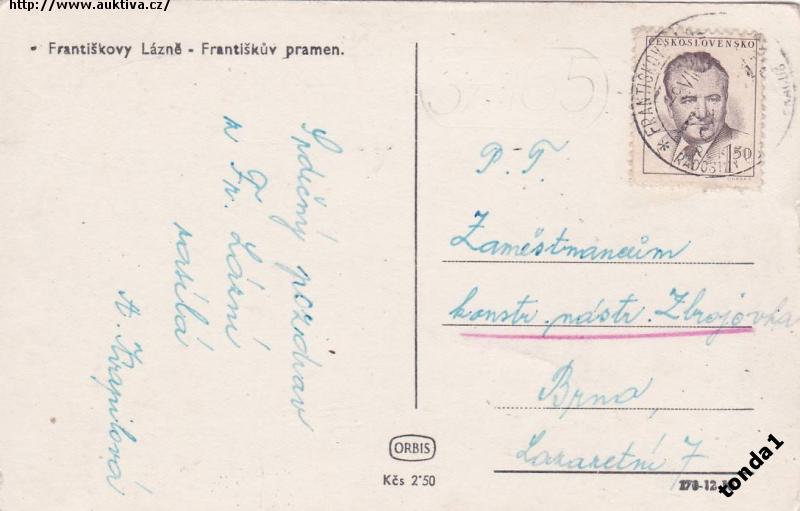 http://www.auktiva.cz/
Františkovy Lázně - Františkův pramen.
Srdečný pozdrav
z Fr. Lázní
zasílá
A. Kvapilová
ČESKOSLOVENSKO
1.50
FRANTIŠKOVY
RADOST
P. T.
Zaměstnancům
konstr. nástr. Zbrojovka
Brno,
Lazaretní 7
ORBIS
Kčs 2·50
tonda1